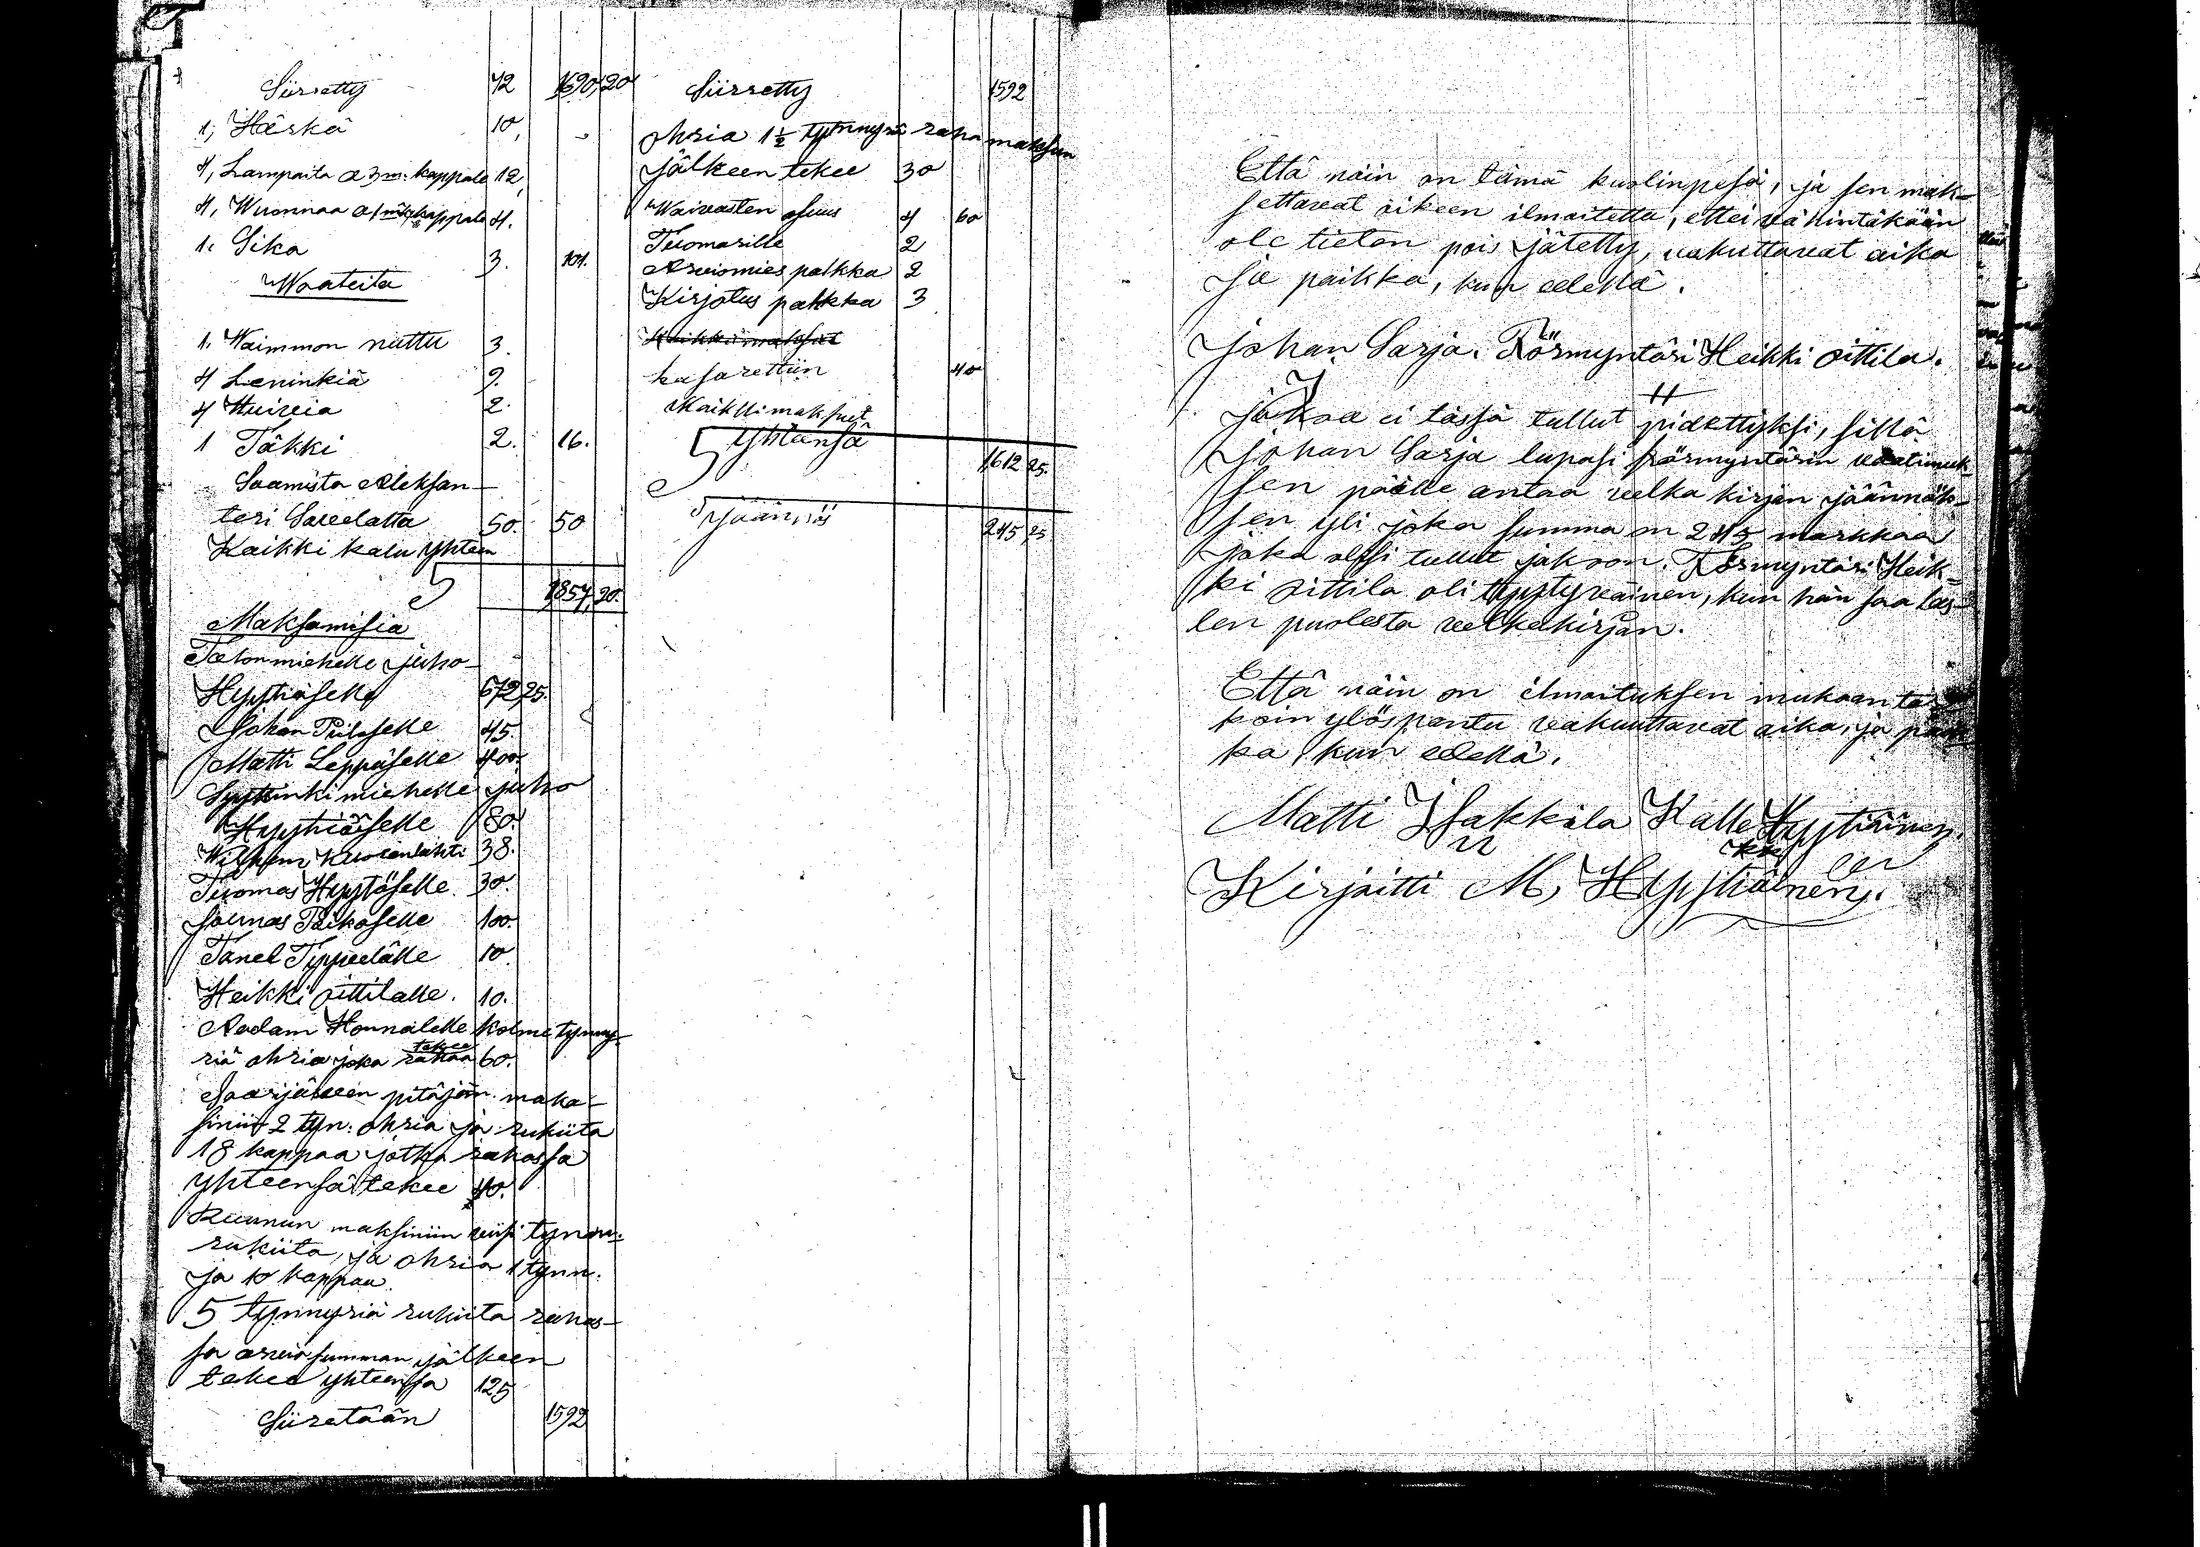 Siirretty 72 1690 20
1, Häskä 10,
4, Lampaita a 3 m: kappale 12,
4, Wuonnaa a 1 mk kappale 4.
1. Sika 3. 101.
Waateita
1. Waimmon nuttu 3.
4 Leninkiä 9.
4 Huivia 2.
1 Täkki 2. 16.
Saamista Aleksan-
teri Savelatta 50. 50
Kaikki kalu yhteen
1857,20.
Maksamisia
Talonmiehelle Juho
Hyytiäselle 672,25.
Johan Piilaselle 45.
Matti Leppäselle 400.
Syytinkimiehelle Juho
Hyytiäiselle 80.
Wilhem Kuosenlahti 38.
Tuomas Hyytäselle 30.
Joumas Paikaselle 100.
Tanel Tyyvelälle 10
Heikki Oittilalle. 10.
Aadam Honnalelle kolme tynny-
riä ohria joka tekee rahaa 60.
Saarijärven pitäjän maka-
siniin 2 tyn: ohria ja rukiita
18 kappaa jotka rahassa
yhteensä tekee 40.
Kuunun maksiniin viisi tynny:
rukiita, ja ohria 1 tynn.
ja 10 kappaa.
5 tynnyriä rukiita rahas-
sa arvio summan jälkeen
tekee yhteensä 125
Siiretään 1592
Siirretty 1592
ohria 1 1/2 tynnyriä raha maksun
jälkeen tekee 30
Waivasten osuus 4 60
Tuomarille 2
Arviomies palkka 2
Kirjotus palkka 3
Kaikki maksut
kasarettiin 40
Kaikki maksut
Yhtänsä
1612 25.
Jäännös
245 25.
Että näin on tämä kuolinpesä, ja sen mak-
settavat oikeen ilmoitettu, ettei vähintäkään
ole tieten pois jätetty, vakuttavat aika
ja paikka, kun edellä.
Johan Sarja. Förmyntäri Heikki Oittila.
Jakoa ei tässä tullut pidettyksi, sillä
Johan Sarja lupasi förmyntärin vaatimuk-
sen päälle antaa velka kirjan jäännök-
sen yli joka summa on 245 markkaa
joka olisi tullut jakoon. Förmyntäri Heik-
ki Oittila oli tyytyväinen, kun hän saa las-
ten puolesta velkakirjan.
Että näin on ilmoituksen mukaan tar-
koin ylöspantu vakuuttavat aika, ja paik-
ka kun edellä.
Matti Isakkila Kalle Hyytiäinen.
Kirjoitti M, Hyytiäinen.